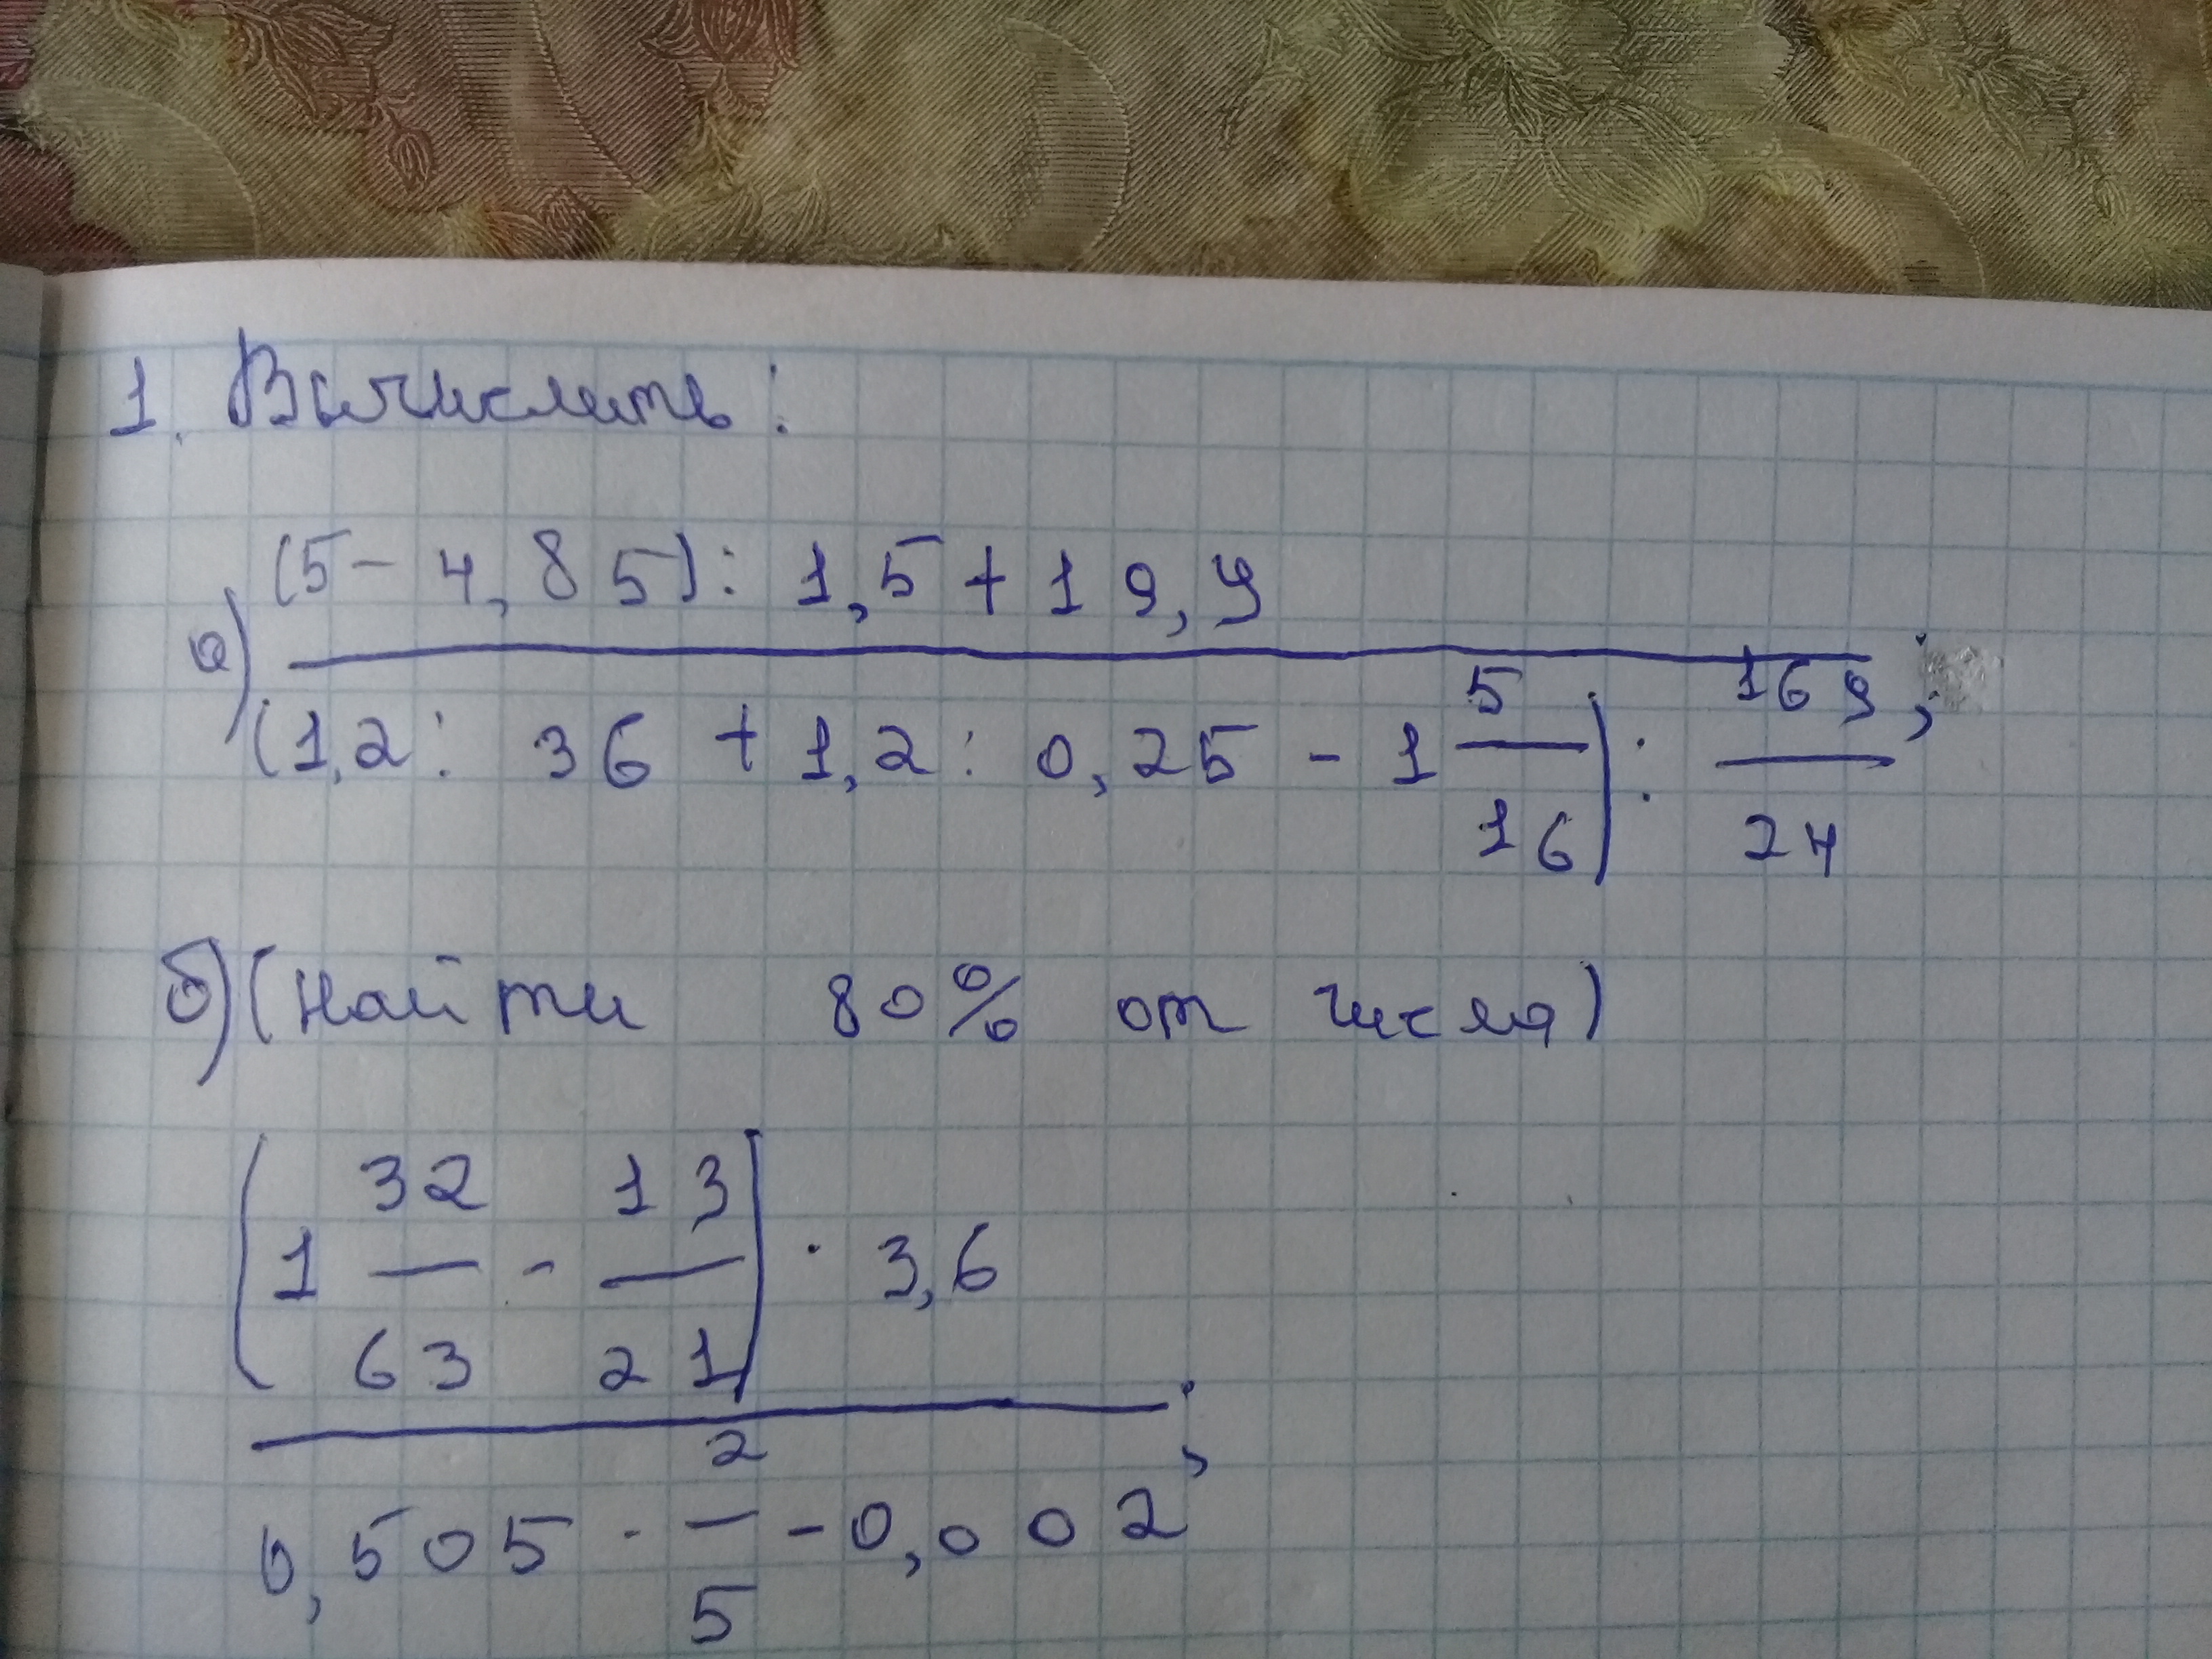 1. Вычислить:
(5 - 4,85) : 1,5 + 19,9
а) ———
(1,2 : 36 + 1,2 : 0,25 - 1 5/16) : 169/24 ;
б) (Найти 80% от числа)
(1 32/63 - 13/21) · 3,6
———
0,505 · 2/5 - 0,002 ;